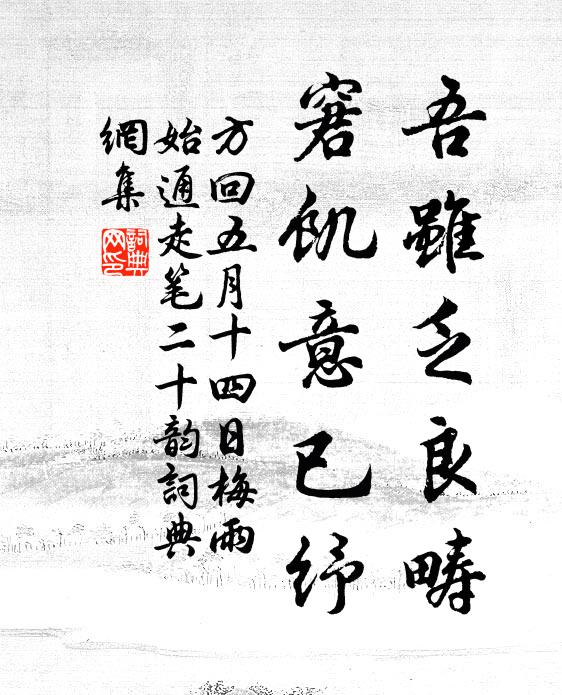 吾雖乏良疇
窘飢意已紓
方回五月十四日梅雨
始通走笔二十韵詞典
網集
詞典
网印